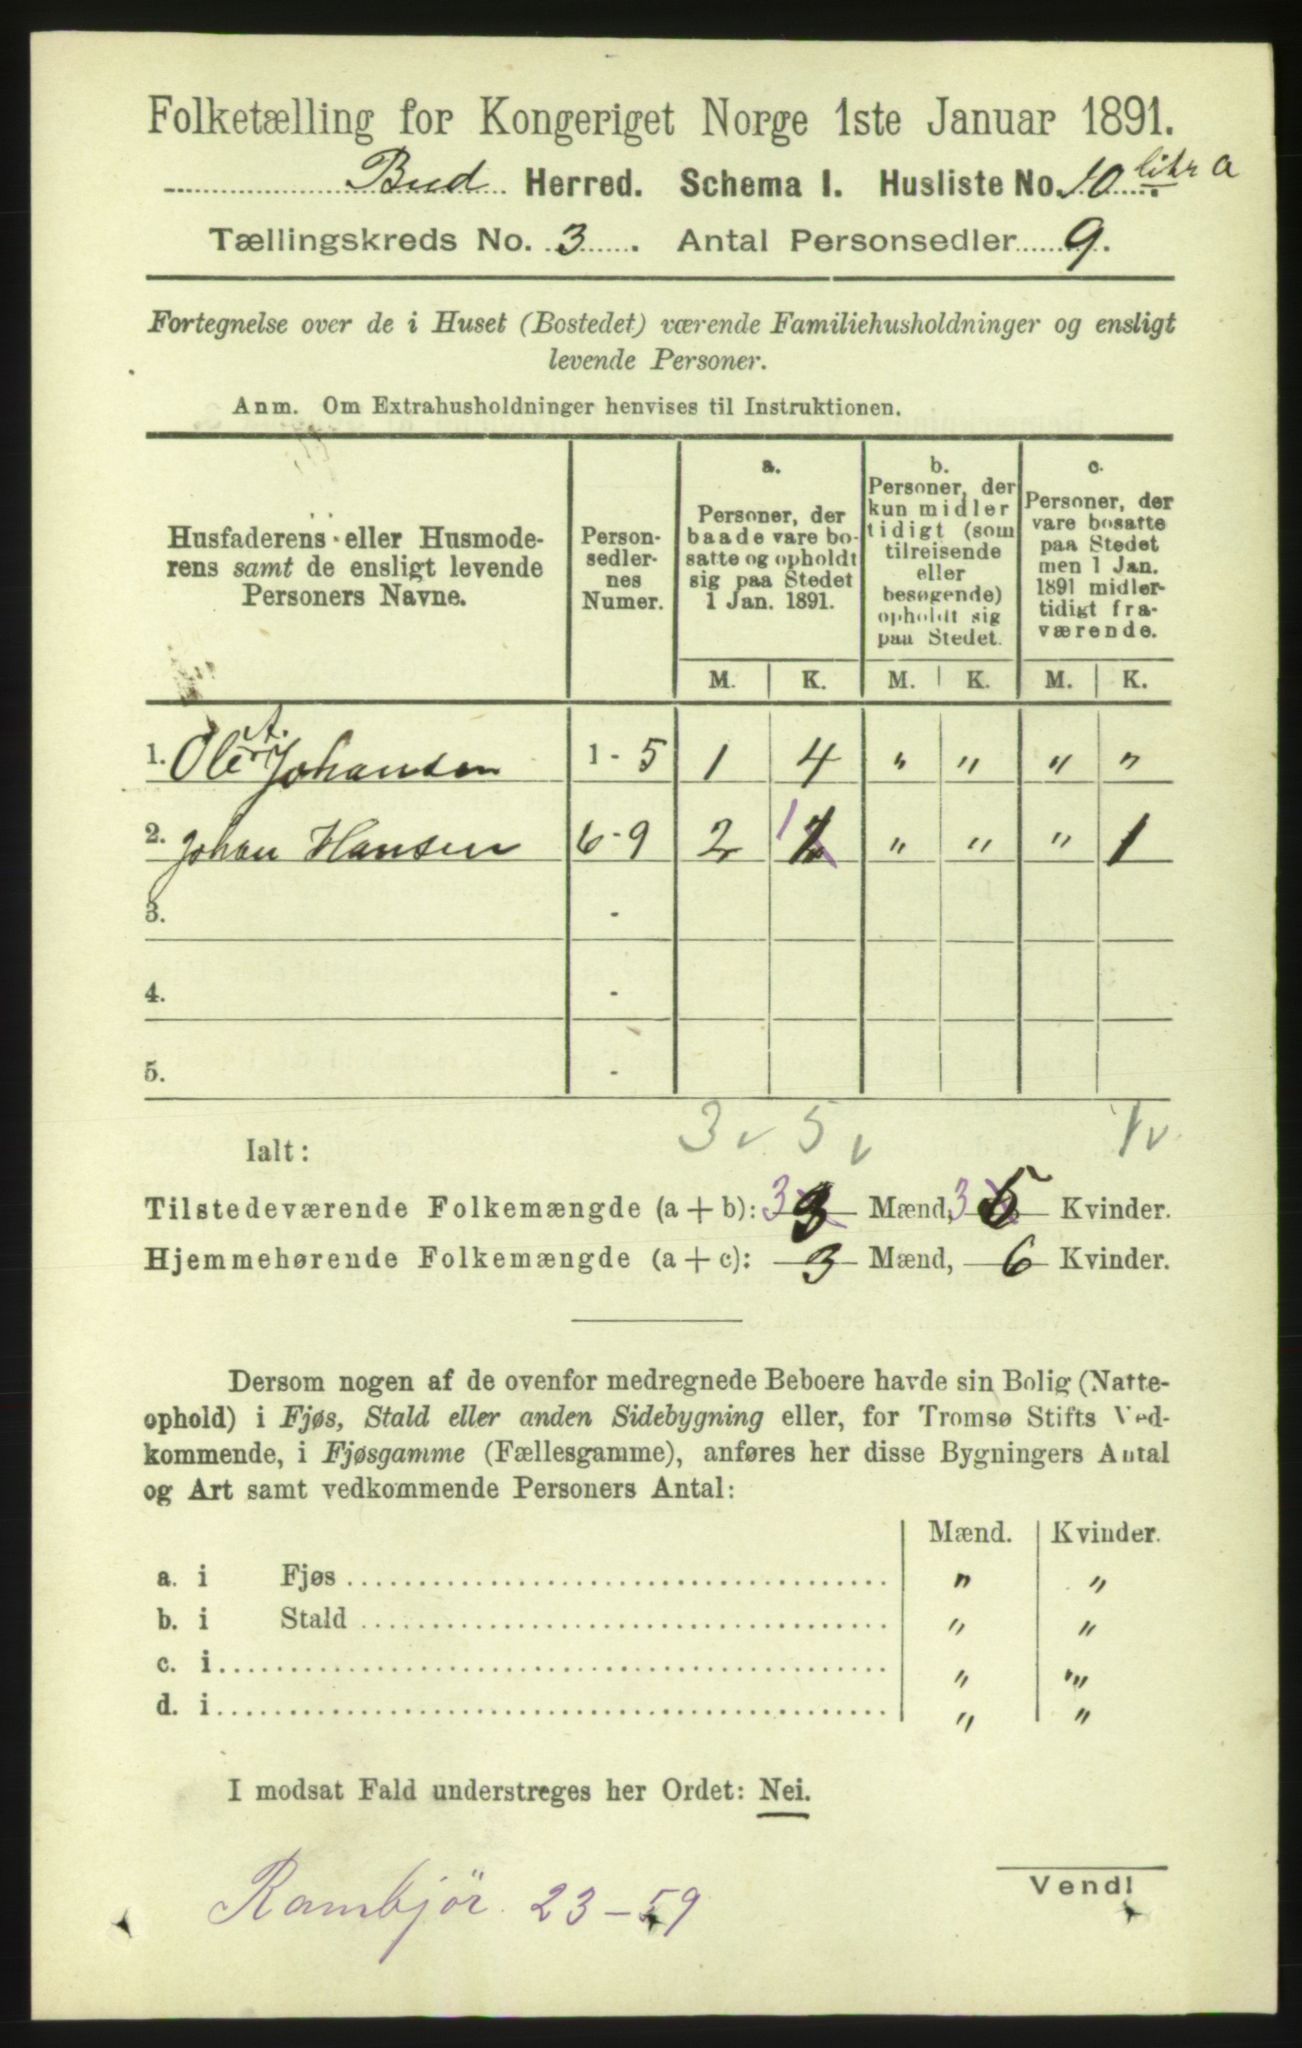 Folketælling for Kongeriget Norge 1ste Januar 1891.
Bud Herred. Schema I. Husliste No. 10 litr a
Tællingskreds No. 3. Antal Personsedler 9.
Fortegnelse over de i Huset (Bostedet) værende Familiehusholdninger og ensligt
levende Personer.
Anm. Om Extrahusholdninger henvises til Instruktionen.
Husfaderens eller Husmode-
rens samt de ensligt levende
Personers Navne.
Person-
sedler-
nes
Numer.
a.
Personer, der
baade vare bo-
satte og opholdt
sig paa Stedet
1 Jan. 1891.
b.
Personer, der
kun midler
tidigt (som
tilreisende
eller
besøgende)
opholdt sig
paa Stedet.
c.
Personer, der
vare bosatte
paa Stedet
men 1 Jan.
1891 midler-
tidigt fra-
værende.
M. K. M. K. M. K.
1. Ole A. Johansen 1 - 5 1 4 " " " "
2. Johan Hansen 6 - 9 2 1 2 " " " 1
3. -
4. -
5. -
3 v 5 v 1 v
Ialt:
Tilstedeværende Folkemængde (a + b): 3 3 Mænd, 3 5 Kvinder.
Hjemmehørende Folkemængde (a + c): 3 Mænd, 6 Kvinder.
Dersom nogen af de ovenfor medregnede Beboere havde sin Bolig (Natte-
ophold) i Fjøs, Stald eller anden Sidebygning eller, for Tromsø Stifts Ved-
kommende, i Fjøsgamme (Fællesgamme), anføres her disse Bygningers Antal
og Art samt vedkommende Personers Antal:
Mænd. Kvinder.
a. i Fjøs " "
b. i Stald " "
c. i " "
d. i " "
I modsat Fald understreges her Ordet: Nei.
Vend!
Rambjör 23 - 59